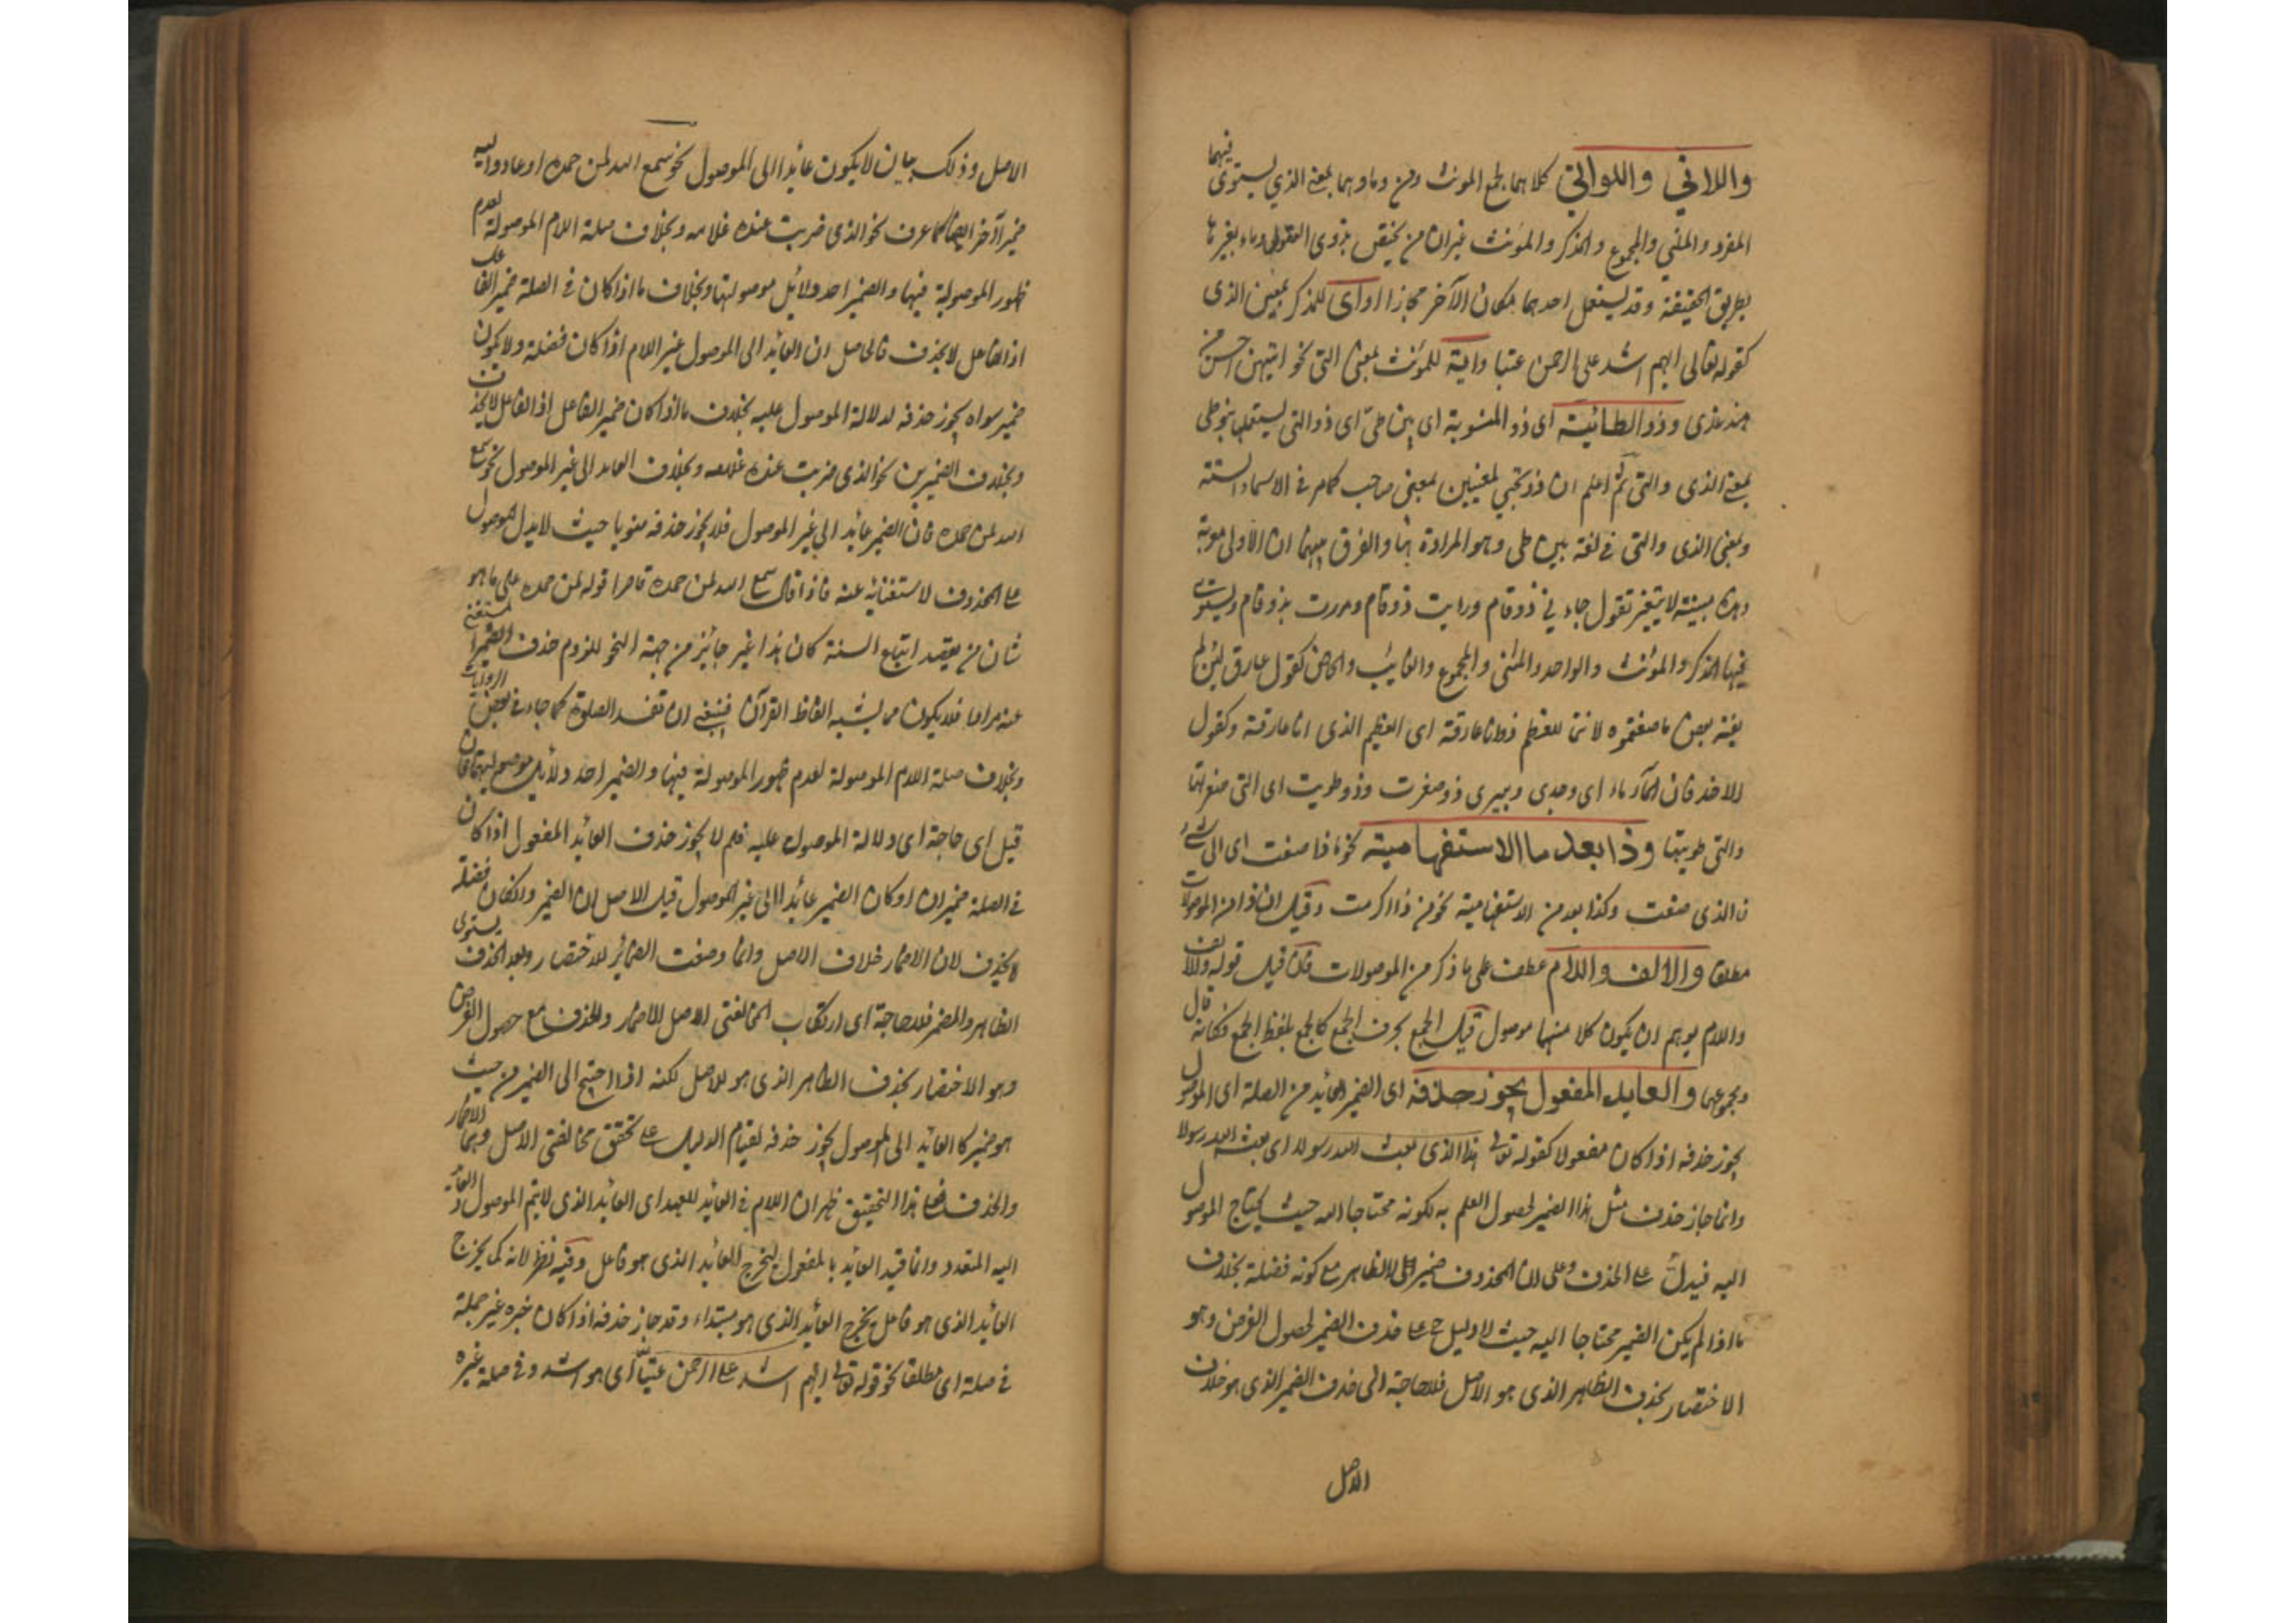 واللاتي واللواتي كلاهما لجمع المونث ومن وما وهما بمعنى الذي يستوي فيهما
المفرد والمثني والمجموع والمذكر والمونث غير ان من يختص بذوى العقول وما بغيرها
بطريق الحقيقة وقد يستعمل احدهما مكان الآخر مجازا واى للمذكر بمعنى الذى
كقوله تعالى ايهم اشد على الرحمن عتيا واية للمونث بمعنى التى نحو ايتهن احسن من
هند عندى وذو الطائية اى ذو المنسوبة اى بنى طىّ اى ذو التى يستعملها بنو طى
بمعنى الذى والتى ثم اعلم ان ذو تجيئ لمعنيين بمعنى صاحب كما مر فى الاسماء الستة
وبمعنى الذى والتى فى لغة بنى طى وهو المرادة هنا والفرق بينهما ان الاولى معربة
وهذه مبنية لا يتغير تقول جاء نى ذو قام ورايت ذو قام ومررت بذو قام ويستوى
فيها المذكر والمونث والواحد والمثنى والمجموع والغايب والحاضر كقول عارق لئن لم
يغير بعض ما صنعتموه لانتحا للعظم ذو انا عارقه اى العظم الذى انا عارقه وكقول
الاخر فان الماء ماء ابى وجدى وبيرى ذو حفرت وذو طويت اى التى حفرتها
والتى طويتها وذا بعد ما الاستفهامية نحو ماذا صنعت اى اى شئ
ما الذى صنعت وكذا بعد من الاستفهامية نحو من ذا اكرمت وقيل انها ذا من الموصولات
مطلقا والالف واللام عطف على ما ذكر من الموصولات فان قيل قوله والالف
واللام يوهم ان يكون كلا منهما موصول قيل الجمع بحرف الجمع كالجمع بلفظ الجمع فكانه قال
ومجموعهما والعايد المفعول يجوز حذفه اى الضمير العايد من الصلة اى الموصول
يجوز حذفه اذا كان مفعولا كقوله تعالى اهذا الذى بعث الله رسولا اى بعثه الله رسولا
وانما جاز حذف مثل هذا الضمير لحصول العلم به لكونه محتاجا اليه حيث يحتاج الموصول
اليه فيدل على الحذف وعلى ان المحذوف ضمير لا الظاهر مع كونه فضلة بخلاف
ما اذا لم يكن الضمير محتاجا اليه حيث لا دليل ح على حذف الضمير لحصول الغرض وهو
الاختصار بحذف الظاهر الذى هو الاصل فلا حاجة الى حذف الضمير الذى هو خلاف
الاصل
الاصل وذلك بان لا يكون عائدا الى الموصول نحو سمع الله لمن حمده او عاد اليه
ضمير آخر ايضا كما عرف نحو الذى ضربت عنده غلامه وبخلاف صلة اللام الموصولة لعدم
ظهور الموصولية فيها والضمير احد دلائل موصوليتها وبخلاف ما اذا كان فى الصلة ضمير الفاعل
اذ الفاعل لا يحذف فالحاصل ان العائد الى الموصول غير اللام اذا كان فضلة ولا يكون
ضمير سواه يجوز حذفه لدلالة الموصول عليه بخلاف ما اذا كان ضمير الفاعل اذ الفاعل لا يحذف
وبخلاف الضميرين نحو الذى ضربت عنده غلامه وبخلاف العايد الى غير الموصول نحو سمع
الله لمن حمده فان الضمير عائد الى غير الموصول فلا يجوز حذفه منويا حيث لا يدل الموصول
على المحذوف لاستغنائه عنه فاذا قال سمع الله لمن حمده قاصرا قوله لمن حمده على ما هو
شان من يعتقد اتباع السنة كان هذا غير جائز من جهة النحو للزوم حذف الضمير المستغنى
عنه مراما فلا يكون مما يشبه الفاظ القرآن فينبغى ان تفسد الصلوة كما جاء فى بعض الروايات
وبخلاف صلة اللام الموصولة لعدم ظهور الموصولة فيها والضمير احد دلائل موصوليتها فان
قيل اى حاجة اى دلالة الموصول عليه فلم لا يجوز حذف العائد المفعول اذا كان
فى الصلة ضميران او كان الضمير عائدا الى غير الموصول قيل الاصل ان الضمير وان كان فضلة
لا يحذف لان الاضمار خلاف الاصل وانما وضعت الضمائر للاختصار وبعد الحذف يستوى
الظاهر والمضمر فلا حاجة اى ارتكاب المخالفتى الاصل الاضمار والحذف مع حصول الغرض
وهو الاختصار بحذف الظاهر الذى هو للاصل لكنه اذا احتيج الى الضمير من حيث
هو ضمير كالعائد الى الموصول يجوز حذفه لقيام الدليل على تحقق مخالفتى الاصل وهما الاضمار
والحذف فعلى هذا التحقيق ظهر ان اللام فى العايد للعهد اى العايد الذى لا يتم الموصول العائد
اليه المتعدد وانما قيد العايد بالمفعول ليخرج العايد الذى هو فاعل وفيه نظر لانه كما يخرج
العايد الذى هو فاعل يخرج العايد الذى هو مبتداء وقد جاز حذفه اذا كان خبره غير جملة
فى صلة اى مطلقا نحو قوله تعالى ايهم اشد على الرحمن عتيا اى هو اشد وفى صلة غيره